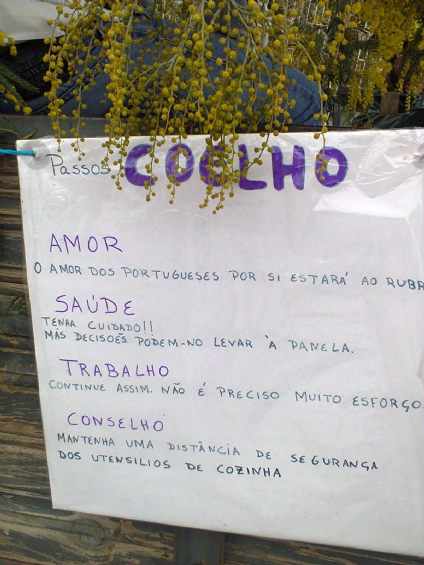 Passos COELHO
AMOR
O AMOR DOS PORTUGUESES POR SI ESTARÁ AO RUBR
SAÚDE
TENHA CUIDADO!!
MÁS DECISOÊS PODEM-NO LEVAR À PANELA.
TRABALHO
CONTINUE ASSIM. NÃO É PRECISO MUITO ESFORÇO
CONSELHO
MANTENHA UMA DISTÂNCIA DE SEGURANÇA
DOS UTENSILIOS DE COZINHA